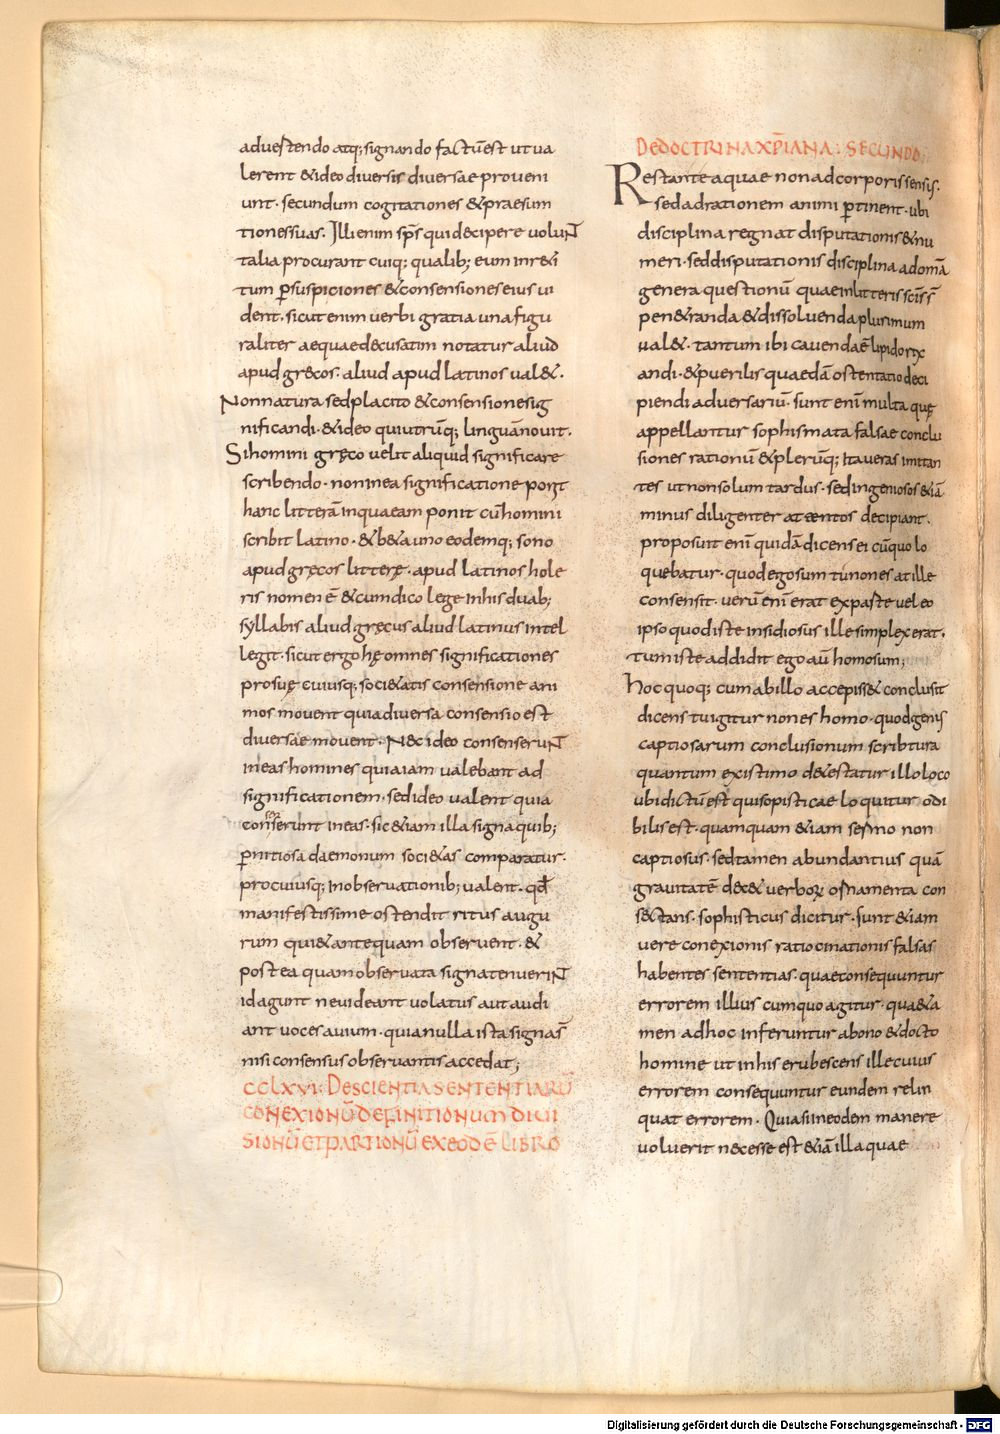 aduertendo atq; signando factū est ut ua
lerent & ideo diuersis diuersae proueni
unt · secundum cogitationes & praesum
tiones suas. Illi enim sp̄s qui decipere uolunt
talia procurant cuiq; qualib; eum inr&i
tum p̱ suspiciones & consensiones eius ui
dent · sicut enim uerbi gratia una figu
raliter aequae decusatim notatur aliud
apud grecos · aliud apud latinos ual& ·
Non natura sed placito & consensione sig
nificandi · & ideo qui utrūq; linguā nouit ·
Si homini gręco uelit aliquid significare
scribendo · non in ea significatione ponit
hanc litterā in qua eam ponit cū homini
scribit latino · & b&a uno eodemq; sono
apud gręcos litterę · apud latinos hole
ris nomen ē & cum dico lege in his duab;
syllabis aliud gręcus aliud latinus intel
legit · sicut ergo hę omnes significationes
pro suę cuiusq; soci&atis consensione ani
mos mouent quia diuersa consensio est
diuersae mouent · Nec ideo consenserunt
in eas homines quia iam ualebant ad
significationem · sed ideo ualent quia
conserunt in eas · sic &iam illa signa quib;
p̱nitiosa daemonum soci&as comparatur ·
pro cuiusq; in obseruationib; ualent · qđ
manifestissime ostendit ritus augu
rum qui & antequam obseruent · &
postea quam obseruata signa tenuerint
id agunt ne uideant uolatus aut audi
ant uoces auium · quia nulla ista signa s̄
nisi consensus obseruantis accedat ;
CCLXXVI · DE SCIENTIA SENTENTIARŪ
CONEXIONŪ DEFINITIONUM DIUI
SIONŪ ET PARTIONŪ EX EODĒ LIBRO
DE DOCTRINA XP̄IANA : SECUNDO
Restant ea quae non ad corporis sensis ·
sed ad rationem animi p̱tinent · ubi
disciplina regnat disputationis & nu
meri · sed disputationis disciplina ad om̄a
genera questionū quae in litteris scīs s̄
pen&randa & dissoluenda plurimum
ual& · tantum ibi cauenda ē lipido rix
andi · & puerilis quaedā ostentatio deci
piendi aduersariū · sunt enī multa quę
appellantur sophismata falsae conclu
siones rationū & plerūq; ita ueras imitan
tes ut non solum tardus · sed ingeniosos &iā
minus diligenter decipiant ·
proposuit enī quidā dicens ei cū quo lo
quebatur · quod ego sum tu non es at ille
consensit · uerū enī erat ex paste uel eo
ipso quod iste insidiosus ille simplex erat ·
tum iste addidit ego aū homo sum ;
hoc quoq; cum ab illo accepiss& conclusit
dicens tu igitur non es homo · quod genis
captiosarum conclusionum scribtura
quantum existimo d&estatur illo loco
ubi dictū est qui sopisticae loquitur odi
bilis est · quamquam &iam sermo non
captiosus · sed tamen abundantius quā
grauitatē dec& uerboꝝ ornamenta con
sectans · sophisticus dicitur · sunt &iam
uere conexionis ratiocinationis falsas
habentes sententias · quae consequuntur
errorem illius cum quo agitur · quae ta
men ad hoc inferuntur a bono & docto
homine ut in his erubescens ille cuius
errorem consequuntur eundem relin
quat errorem · Quia si in eodem manere
uoluerit necesse est &iā illa quae
Digitalisierung gefördert durch die Deutsche Forschungsgemeinschaft - DFG